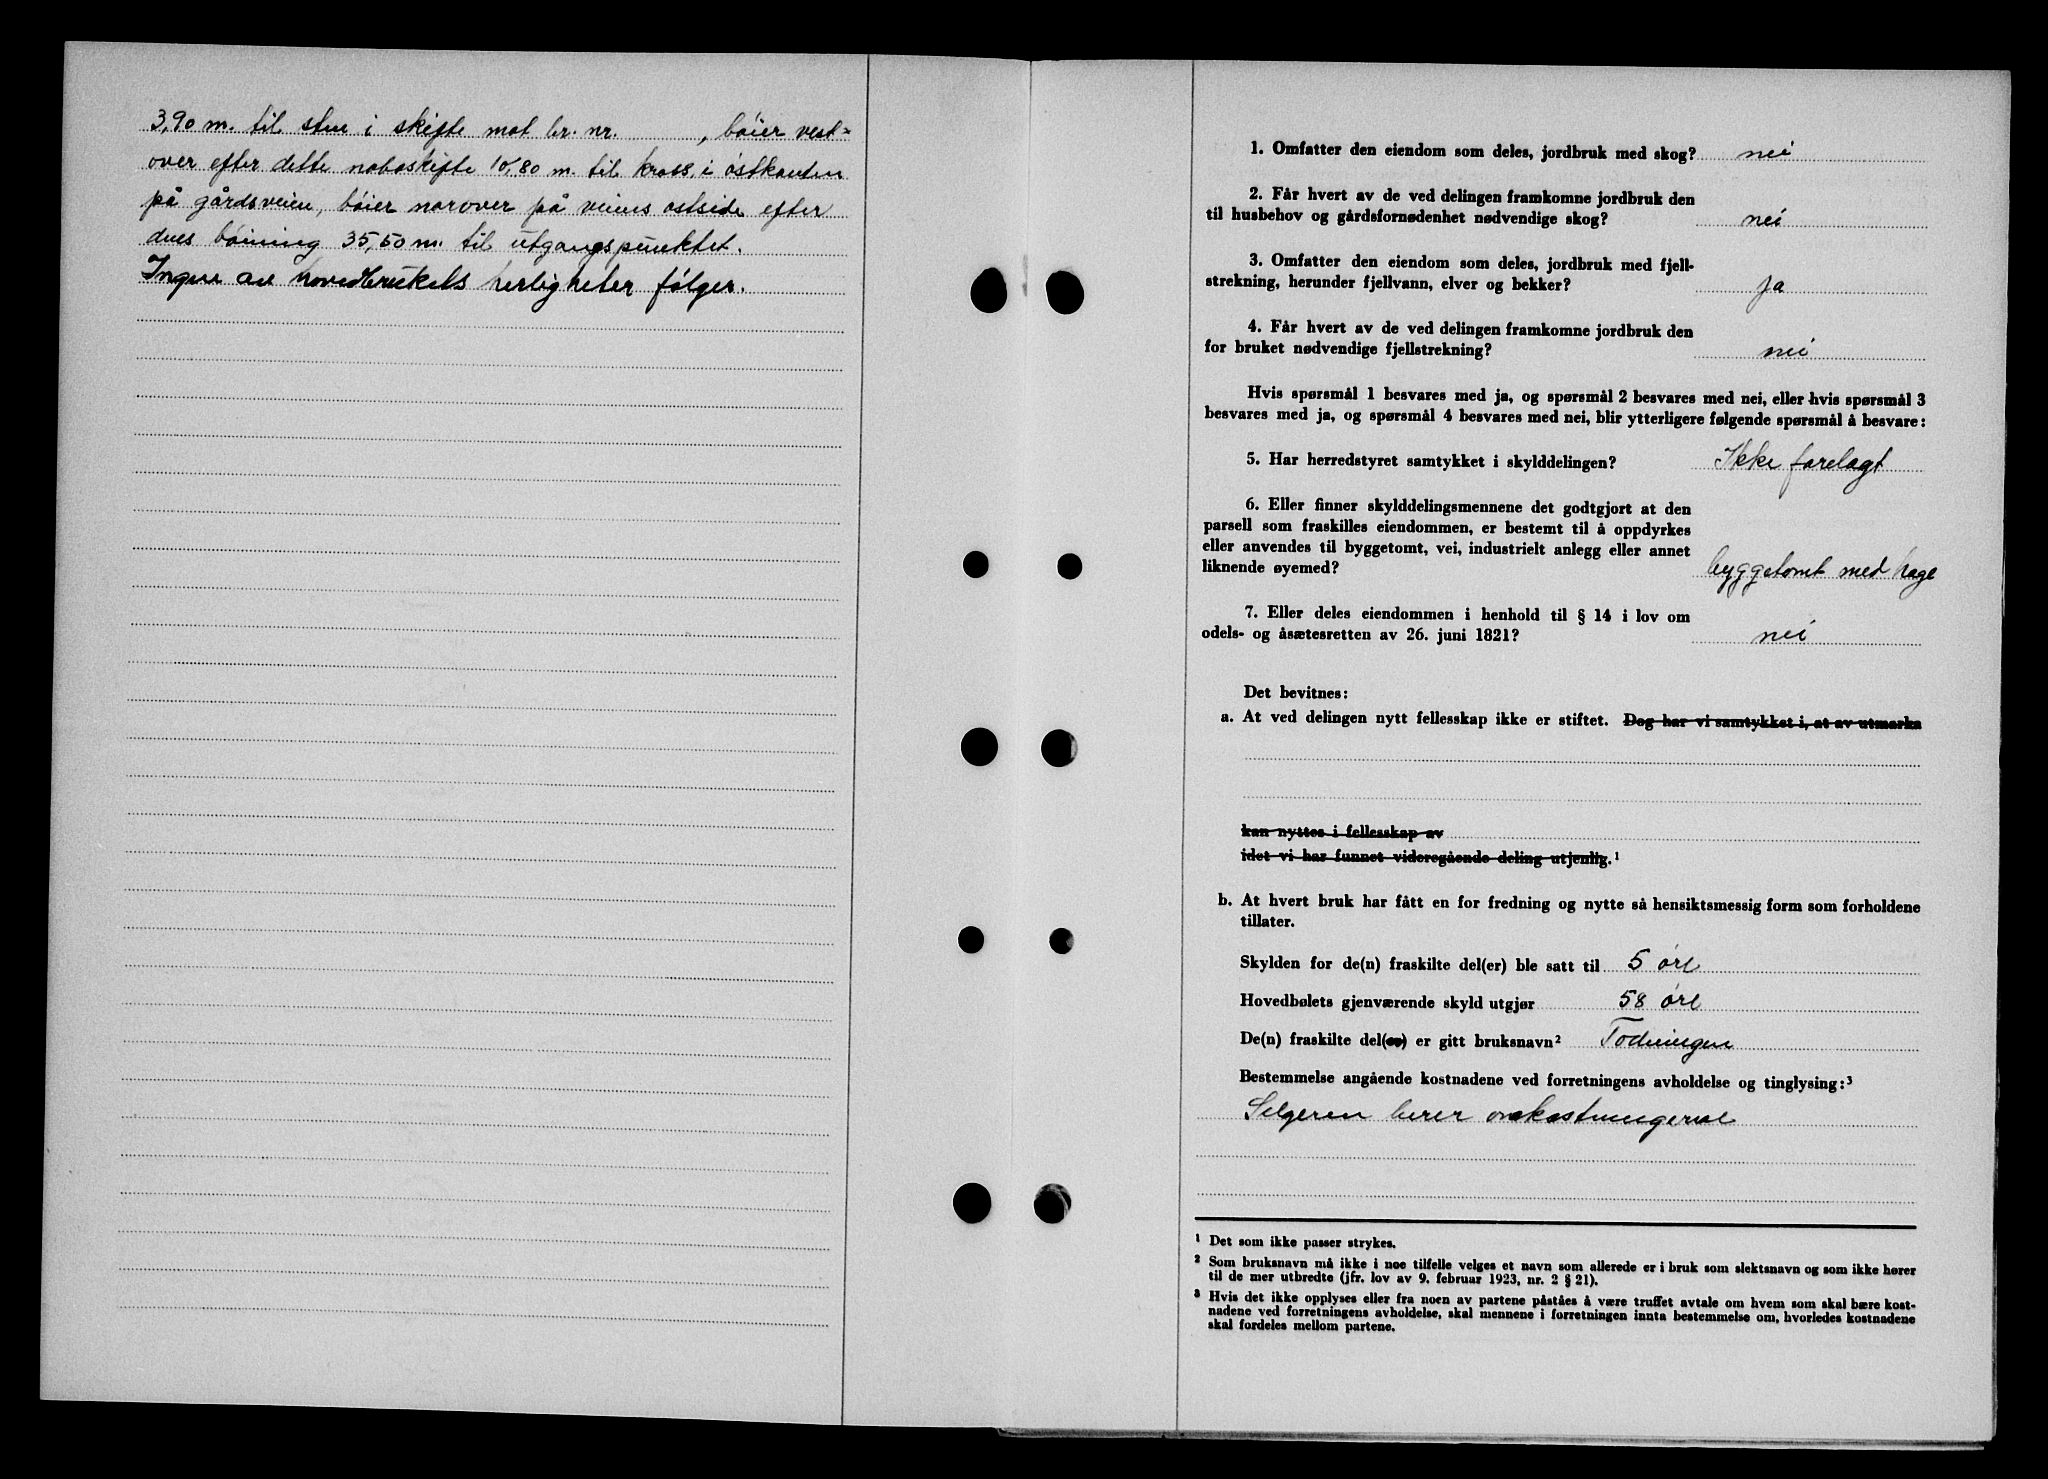 3,90 m. til sten i skifte mot br. nr. , bøier vest-
over efter dette naboskifte 10,80 m. til kross i østkanten
på gårdsveien, bøier norover på veiens ostside efter
dens bøining 35,50 m. til utgangspunktet.
Ingen av hovedbrukets herligheter følger.
1. Omfatter den eiendom som deles, jordbruk med skog? nei
2. Får hvert av de ved delingen framkomne jordbruk den
til husbehov og gårdsfornødenhet nødvendige skog? nei
3. Omfatter den eiendom som deles, jordbruk med fjell-
strekning, herunder fjellvann, elver og bekker? ja
4. Får hvert av de ved delingen framkomne jordbruk den
for bruket nødvendige fjellstrekning? nei
Hvis spørsmål 1 besvares med ja, og spørsmål 2 besvares med nei, eller hvis spørsmål 3
besvares med ja, og spørsmål 4 besvares med nei, blir ytterligere følgende spørsmål å besvare:
5. Har herredstyret samtykket i skylddelingen? Ikke forelagt
6. Eller finner skylddelingsmennene det godtgjort at den
parsell som fraskilles eiendommen, er bestemt til å oppdyrkes
eller anvendes til byggetomt, vei, industrielt anlegg eller annet
liknende øyemed? byggetomt med hage
7. Eller deles eiendommen i henhold til § 14 i lov om
odels- og åsætesretten av 26. juni 1821? nei
Det bevitnes:
a. At ved delingen nytt fellesskap ikke er stiftet. Dog har vi samtykket i, at av utmarka
kan nyttes i fellesskap av
idet vi har funnet videregående deling utjenlig.¹
b. At hvert bruk har fått en for fredning og nytte så hensiktsmessig form som forholdene
tillater.
Skylden for de(n) fraskilte del(er) ble satt til 5 øre
Hovedbølets gjenværende skyld utgjør 58 øre
De(n) fraskilte del(er) er gitt bruksnavn²
Bestemmelse angående kostnadene ved forretningens avholdelse og tinglysing:³
Selgeren berer omkostningerne
¹ Det som ikke passer strykes.
² Som bruksnavn må ikke i noe tilfelle velges et navn som allerede er i bruk som slektsnavn og som ikke hører
til de mer utbredte (jfr. lov av 9. februar 1923, nr. 2 § 21).
³ Hvis det ikke opplyses eller fra noen av partene påståes å være truffet avtale om hvem som skal bære kost-
nadene ved forretningens avholdelse, skal mennene i forretningen innta bestemmelse om, hvorledes kostnadene
skal fordeles mellom partene.